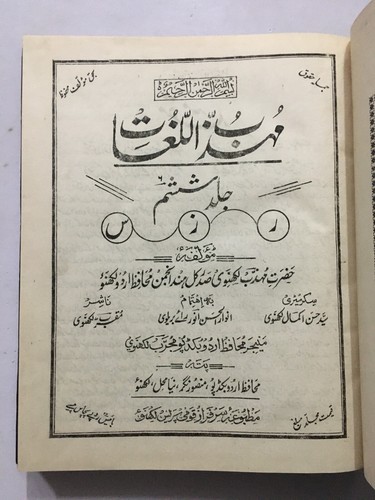 جملہ حقوق بحق مؤلف محفوظ
بسم اللہ الرحمن الرحیم
مہذب اللغات
جلد ششم ۶
ر ز س
مؤلفہ
حضرت مہذب لکھنوی صدر کل ہند انجمن محافظ اردو لکھنؤ
سکریٹری باہتمام ناشر
سید حسن اکمال لکھنوی انوار الحسن انور رائے بریلوی لکھنوی
منیجر محافظ اردو بکڈپو مجرب لکھنوی
پتہ
محافظ اردو بکڈپو، منصور نگر، نیا محل، لکھنؤ
مطبوعہ سرفراز قومی پریس لکھنؤ
قیمت مجلد مبلغ